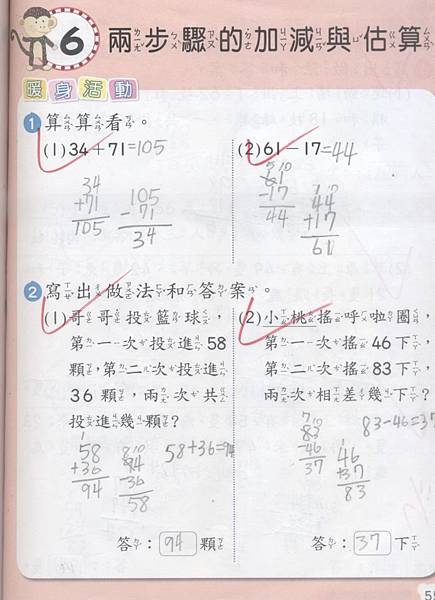 6 兩步驟的加減與估算
暖身活動
1 算算看。
(1) 34+71=105
34
+71
105
105
-71
34
(2) 61-17=44
5 10
61
-17
44
1
44
+17
61
2 寫出做法和答案。
(1) 哥哥投籃球,
第一次投進58
顆,第二次投進
36顆,兩次共
投進幾顆?
1
58
+36
94
8 10
94
-36
58
58+36=94
答:94顆
(2) 小桃搖呼啦圈,
第一次搖46下,
第二次搖83下,
兩次相差幾下?
7 10
83
-46
37
83-46=37
1
46
+37
83
答:37下